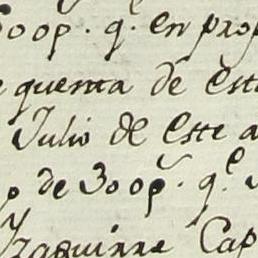 600p. q.e en prop
quenta de est
Julio de Este a
de 300p. q.e
Yzaguirre Cap